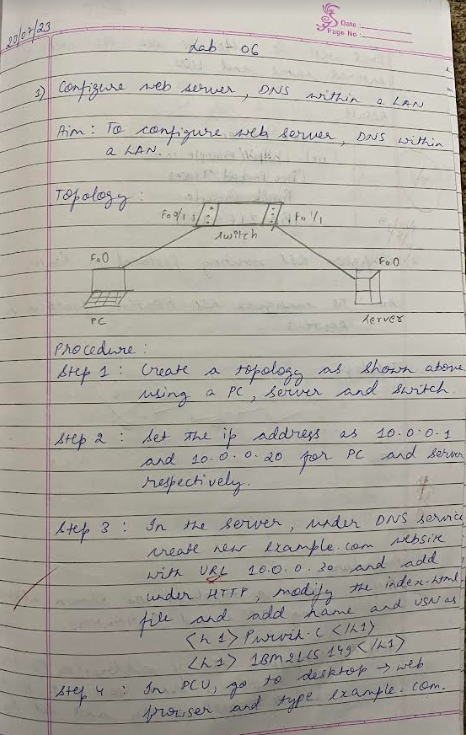 Date :
Page No :
20/07/23
Lab - 06
1) Configure web server, DNS within a LAN
Aim : To configure web server, DNS within
a LAN.
Topology :
Fa0/1
Fa1/1
switch
Fa0
Fa0
PC
server
Procedure :
Step 1 : Create a topology as shown above
using a PC, server and switch.
Step 2 : Set the ip address as 10.0.0.1
and 10.0.0.20 for PC and server
respectively.
Step 3 : In the server, under DNS service
create new example.com website
with URL 10.0.0.30 and add
under HTTP, modify the index.html
file and add name and USN as
<h1> Purvik.C </h1>
<h1> 1BM21CS149 </h1>
Step 4 : In PCU, go to desktop → web
browser and type example.com.